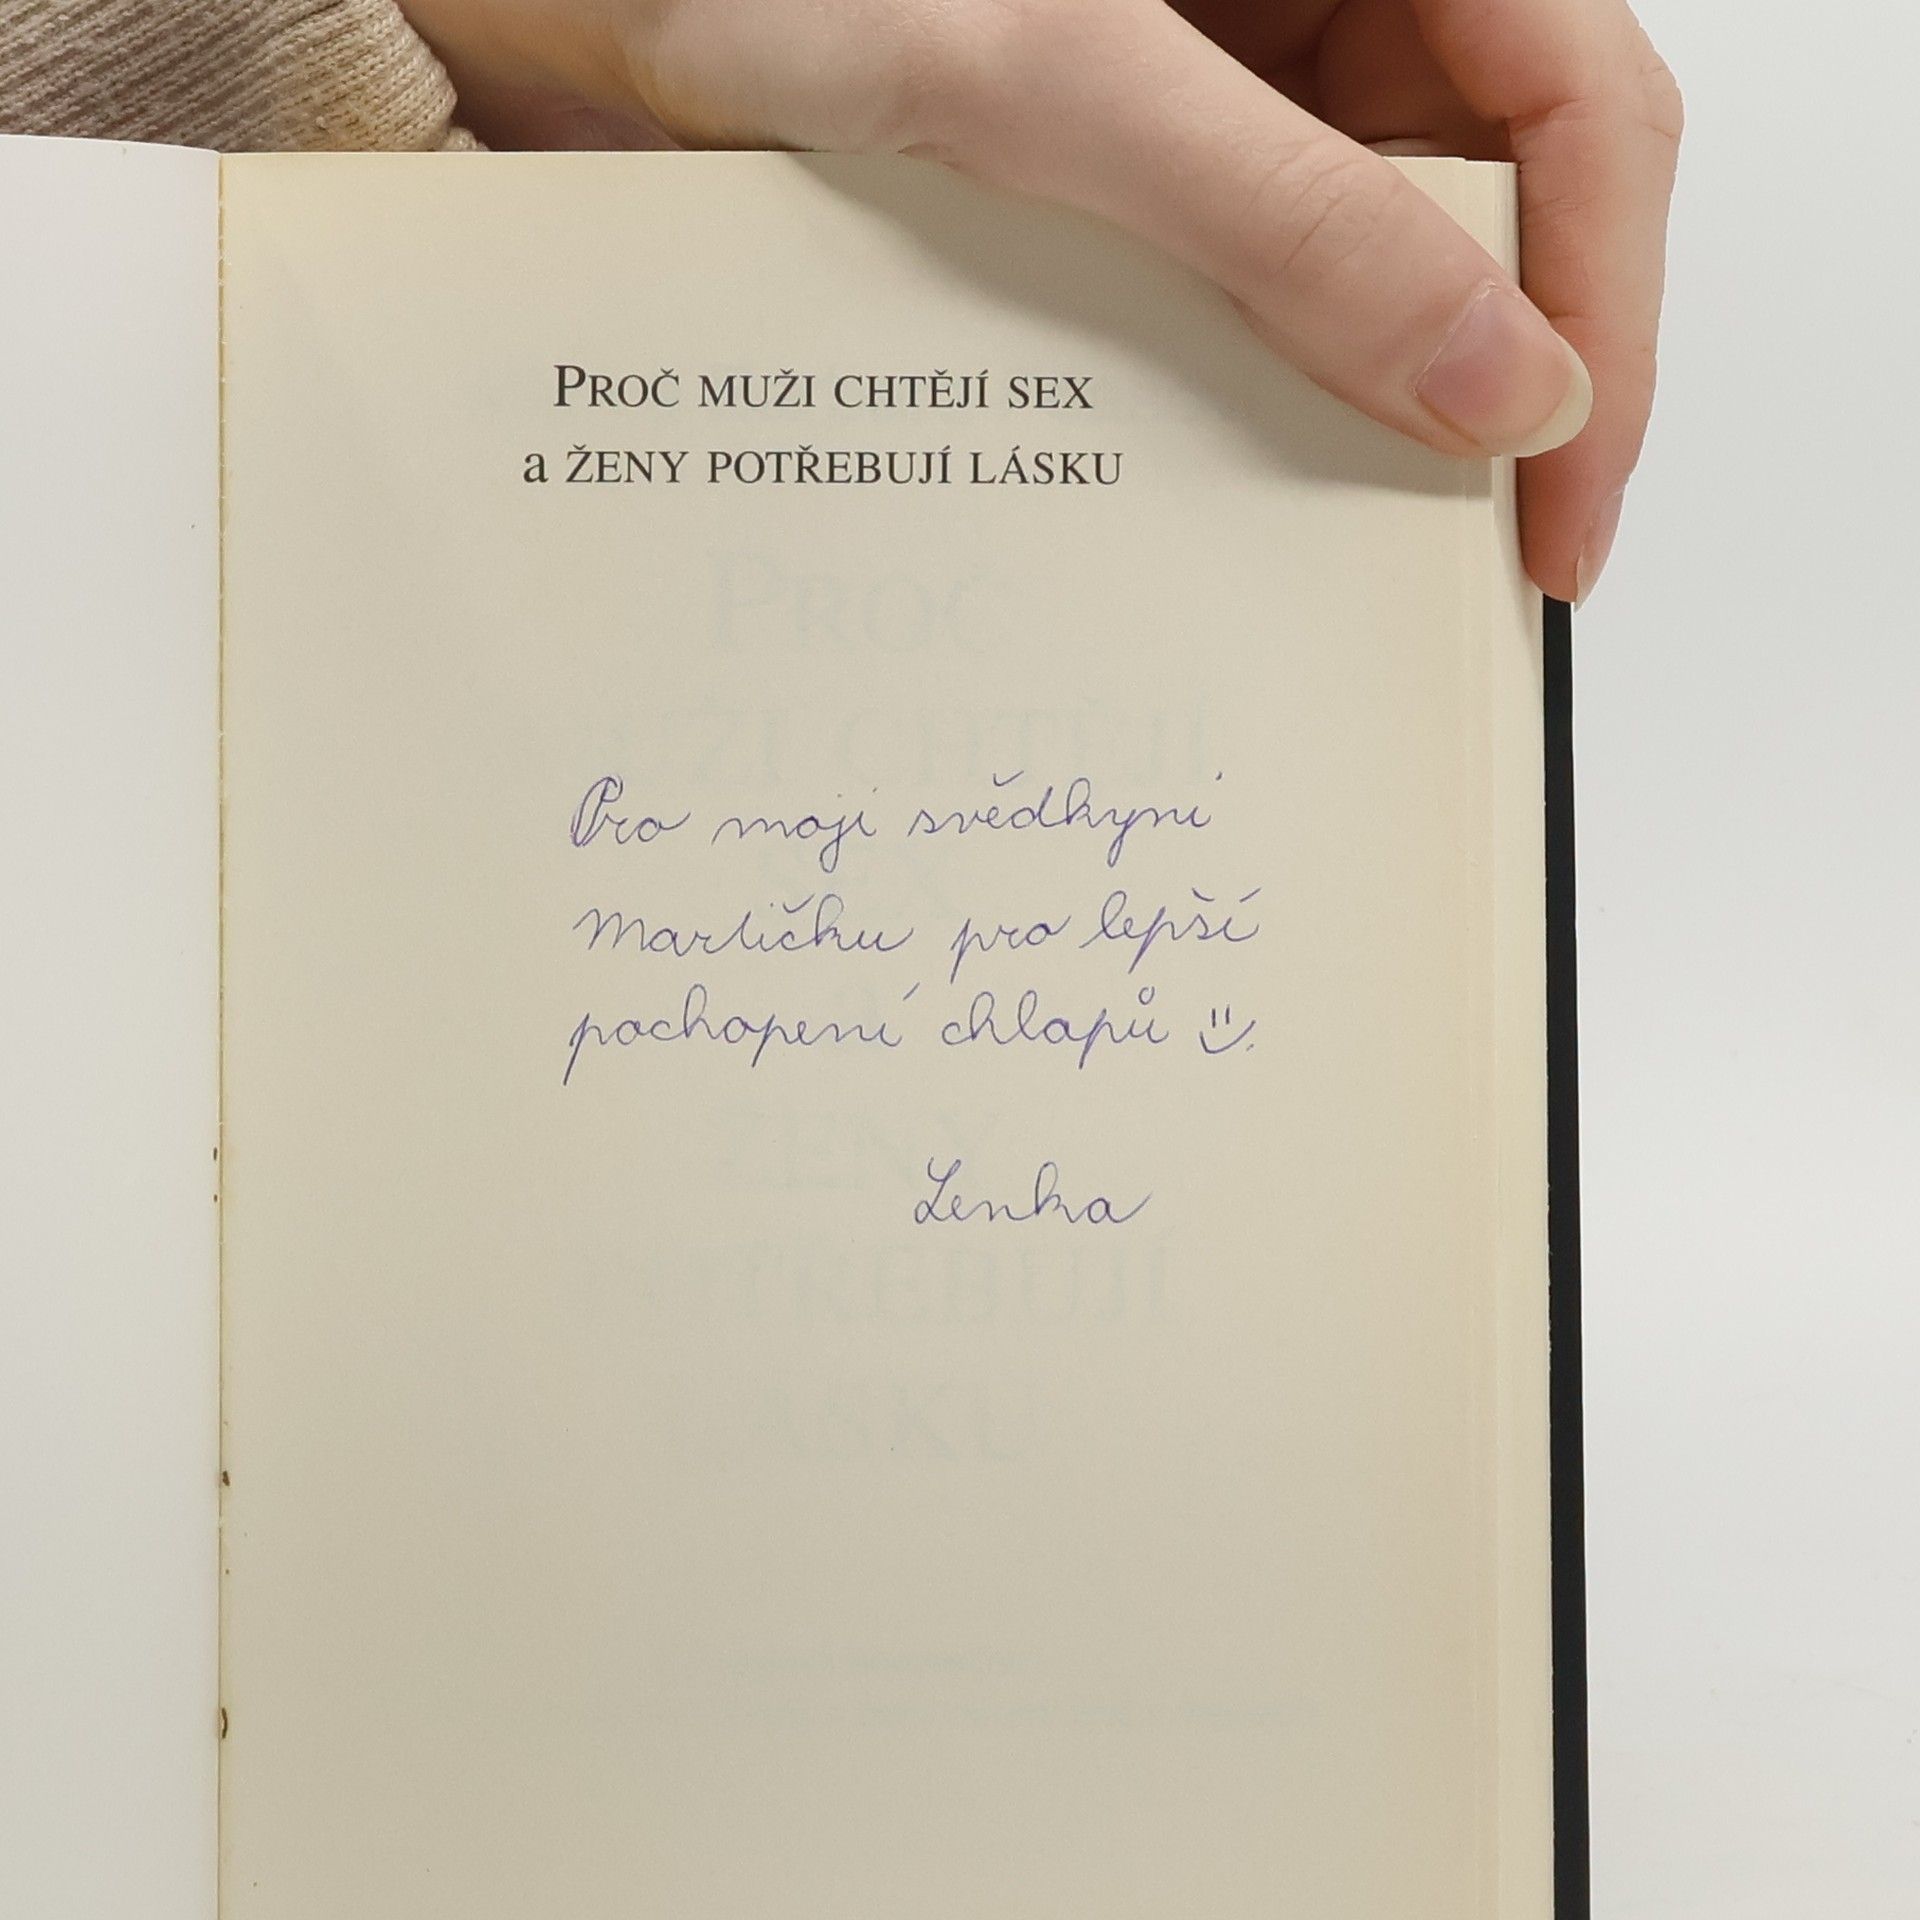 PROČ MUŽI CHTĚJÍ SEX
a ŽENY POTŘEBUJÍ LÁSKU
Pro moji svědkyni
Martičku pro lepší
pochopení chlapů
Lenka